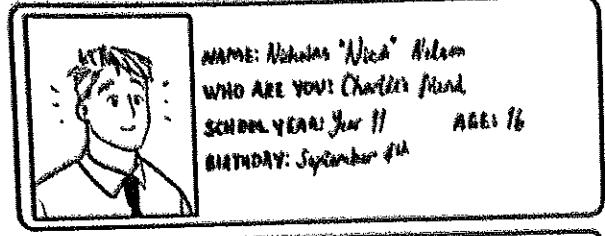 NAME: Nicholas "Nick" Nelson
WHO ARE YOU: Charlie's friend,
SCHOOL YEAR: Year 11 AGE: 16
BIRTHDAY: September 4th